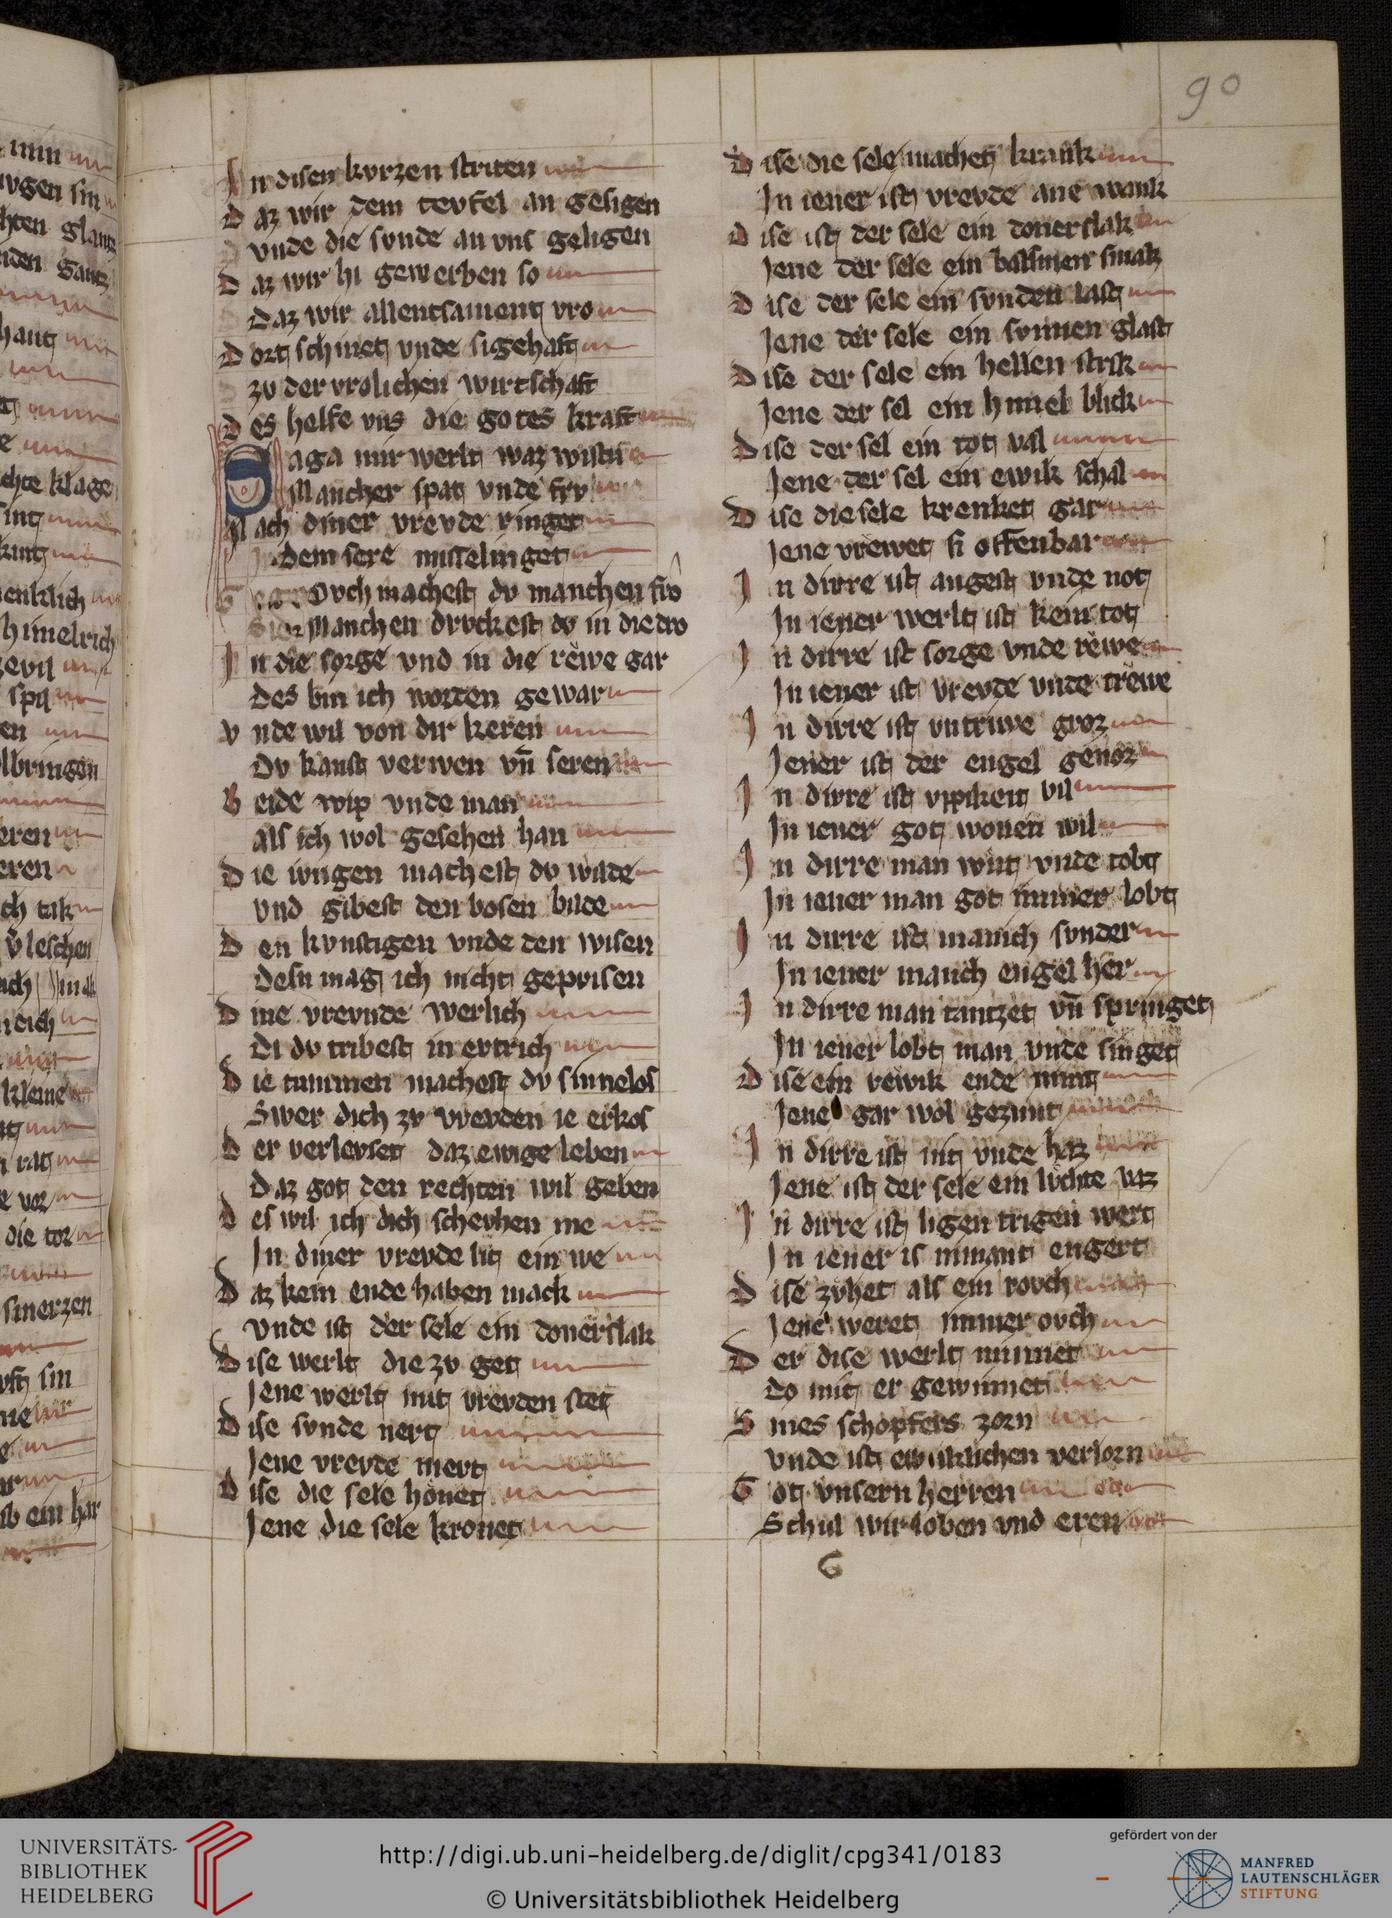 90
In disen kvrzen striten
Daz wir dem tevfel an gesigen
vnde die svnde an vns geligen
Daz wir hi gewerben so
Daz wir allentsament vro
Dort schinet vnde sigehaft
zv der vrolichen wirtschaft
Des helfe vns die gotes kraft
Saga mir werlt waz wistu
Mancher spat vnde frv
Nach diner vrevde ringet
dem sere misselinget
Ovch machest dv manchen fro
Manchen drvckest dv in die dro
In die sorge vnd in die rewe gar
Des bin ich worden gewar
Vnde wil von dir keren
Dv kanst verwen vn seren
Beide wip vnde man
als ich wol gesehen han
Die ivngen machest dv wilde
Vnd gibest den bosen bilde
Den kvnstigen vnde den wisen
Desn mag ich nicht geprisen
Dine vrevnde werlich
Di dv tribest in ertrich
Die tummen machest dv sinnelos
Swer dich zv vrevden ie erkos
Der verlevset daz ewige leben
Daz got den rechten wil geben
Des wil ich dich schevhen me
In diner vrevde lit ein we
Daz kein ende haben mack
Vnde ist der sele ein donerslak
Dise werlt die zv get
Jene werlt mit vrevden stet
Dise svnde nert
Jene vrevde mert
Dise die sele honet
Jene die sele kronet
Dise die sele machet krank
In iener ist vrevde ane wank
Dise ist der sele ein donerslak
Jene der sele ein balsmen smak
Dise der sele ein svnden last
Jene der sele ein svnnen glast
Dise der sele ein hellen strik
Jene der sel ein himel blick
Dise der sel ein tot val
Jene der sel ein ewik schal
Dise die sele krenket gar
Jene vrewet si offenbar
In dirre ist angest vnde not
In iener werlt ist kein tot
In dirre ist sorge vnde rewe
In iener ist vrevde vnde trewe
In dirre ist vntriwe groz
Jener ist der engel genoz
In dirre ist vppikeit vil
In iener got wonen wil
In dirre man wut vnde tobt
In iener man got immer lobt
In dirre ist manich svnder
In iener manch engel her
In dirre man tantzet vn springet
In iener lobt man vnde singet
Dise ein rewik ende nimt
Jene gar wol gezimt
In dirre ist nit vnde haz
Jene ist der sele ein lichte vaz
In dirre ist ligen trigen wert
In iener is nimant engert
Dise zvhet als ein rovch
Jene weret immer ovch
Der dise werlt minnet
Do mit er gewinnet
Sines schopfers zorn
Vnde ist ewiklichen verlorn
Got vnsern herren
Schul wir loben vnd eren
G
UNIVERSITÄTS-
BIBLIOTHEK
HEIDELBERG
http://digi.ub.uni-heidelberg.de/diglit/cpg341/0183
© Universitätsbibliothek Heidelberg
gefördert von der
MANFRED
LAUTENSCHLÄGER
STIFTUNG